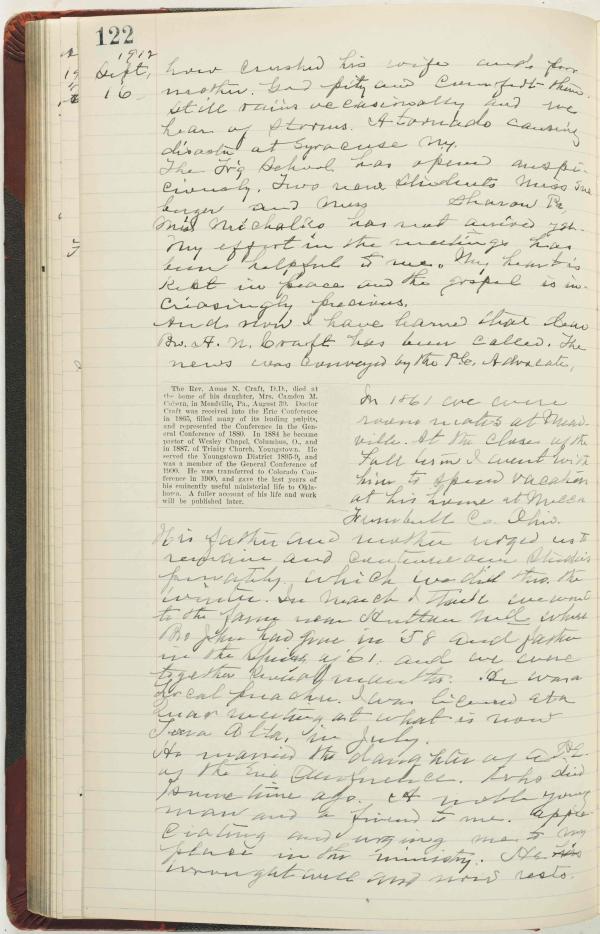 122
1912
Sept,
16
how crushed his wife and poor
mother. God pity and comfort them.
Still rains occasionally and we
hear of storms. A tornado causing
disaster at Syracuse Ny.
The Tr'g School has opened auspi-
ciously. Two new students Miss
and Miss Sharon Pa,
Miss Michalies has not arrived yet.
My effort in the meetings has
been helpful to me. My heart is
kept in peace and the gospel is in-
creasingly precious.
And now I have learned that dear
Bro. A. N. Craft has been called. The
news was conveyed by the P.C. Advocate,
The Rev. Amos N. Craft, D.D., died at
the home of his daughter, Mrs. Camden M.
Cobern, in Meadville, Pa., August 30. Doctor
Craft was received into the Erie Conference
in 1865, filled many of its leading pulpits,
and represented the Conference in the Gen-
eral Conference of 1880. In 1884 he became
pastor of Wesley Chapel, Columbus, O., and
in 1887, of Trinity Church, Youngstown. He
served the Youngstown District 1895-9, and
was a member of the General Conference of
1900. He was transferred to Colorado Con-
ference in 1900, and gave the last years of
his eminently useful ministerial life to Okla-
homa. A fuller account of his life and work
will be published later.
In 1861 we were
room mates at Mead-
ville. At the close of the
Fall term I went with
him to spend vacation
at his home at Mecca
Trumbull Co. Ohio.
His father and mother urged us to
remain and continue our studies
privately, which we did thro. the
winter. In March I think we went
to the farm near Hutton Md. where
Bro John had gone in '58 and father
in the Spring of '61. and we were
together several months. He was a
local preacher. I was licensed at a
Quar meeting at what is now
Terra Alta, in July.
He married the daughter of a P.E.
of the Erie Conference. who died
some time ago. A noble young
man and a friend to me. appre-
ciating and urging me to my
place in the ministry. He has
wrought well and now rests.